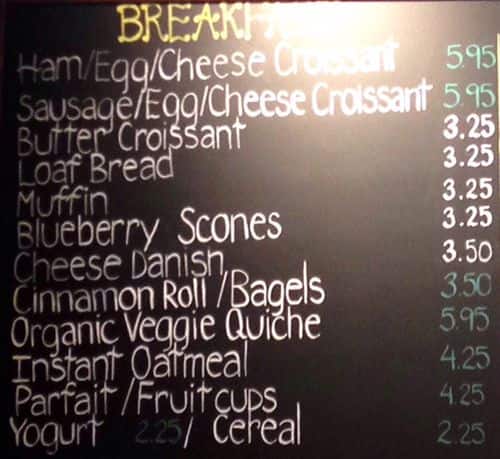 BREAKFAST
Ham/Egg/Cheese Croissant 5.95
Sausage/Egg/Cheese Croissant 5.95
Butter Croissant 3.25
Loaf Bread 3.25
Muffin 3.25
Blueberry Scones 3.25
Cheese Danish 3.50
Cinnamon Roll /Bagels 3.50
Organic Veggie Quiche 5.95
Instant Oatmeal 4.25
Parfait /Fruit cups 4.25
Yogurt 2.25 / Cereal 2.25